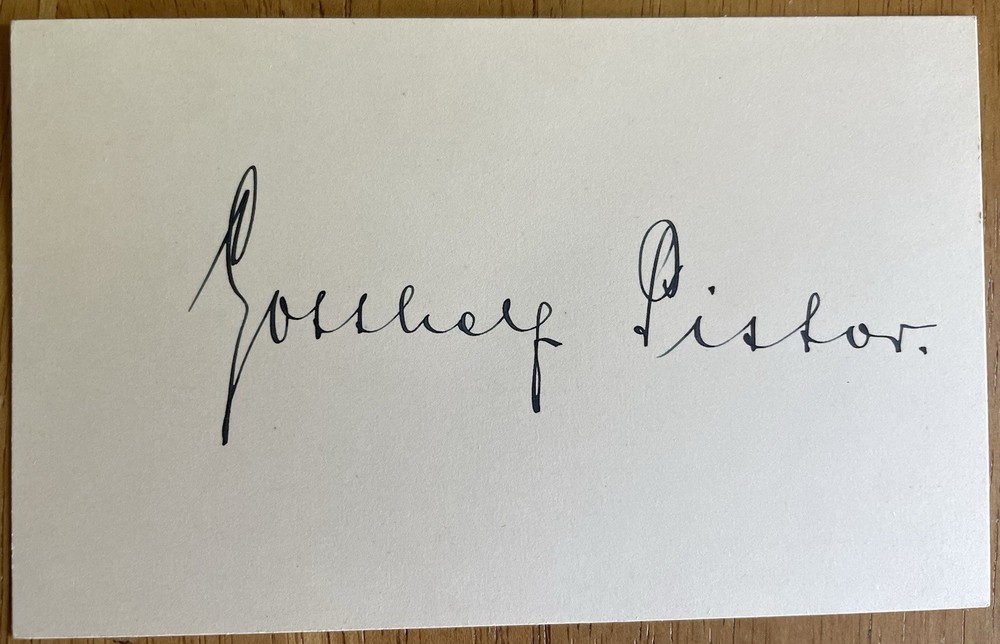 Gotthelf Pistor.